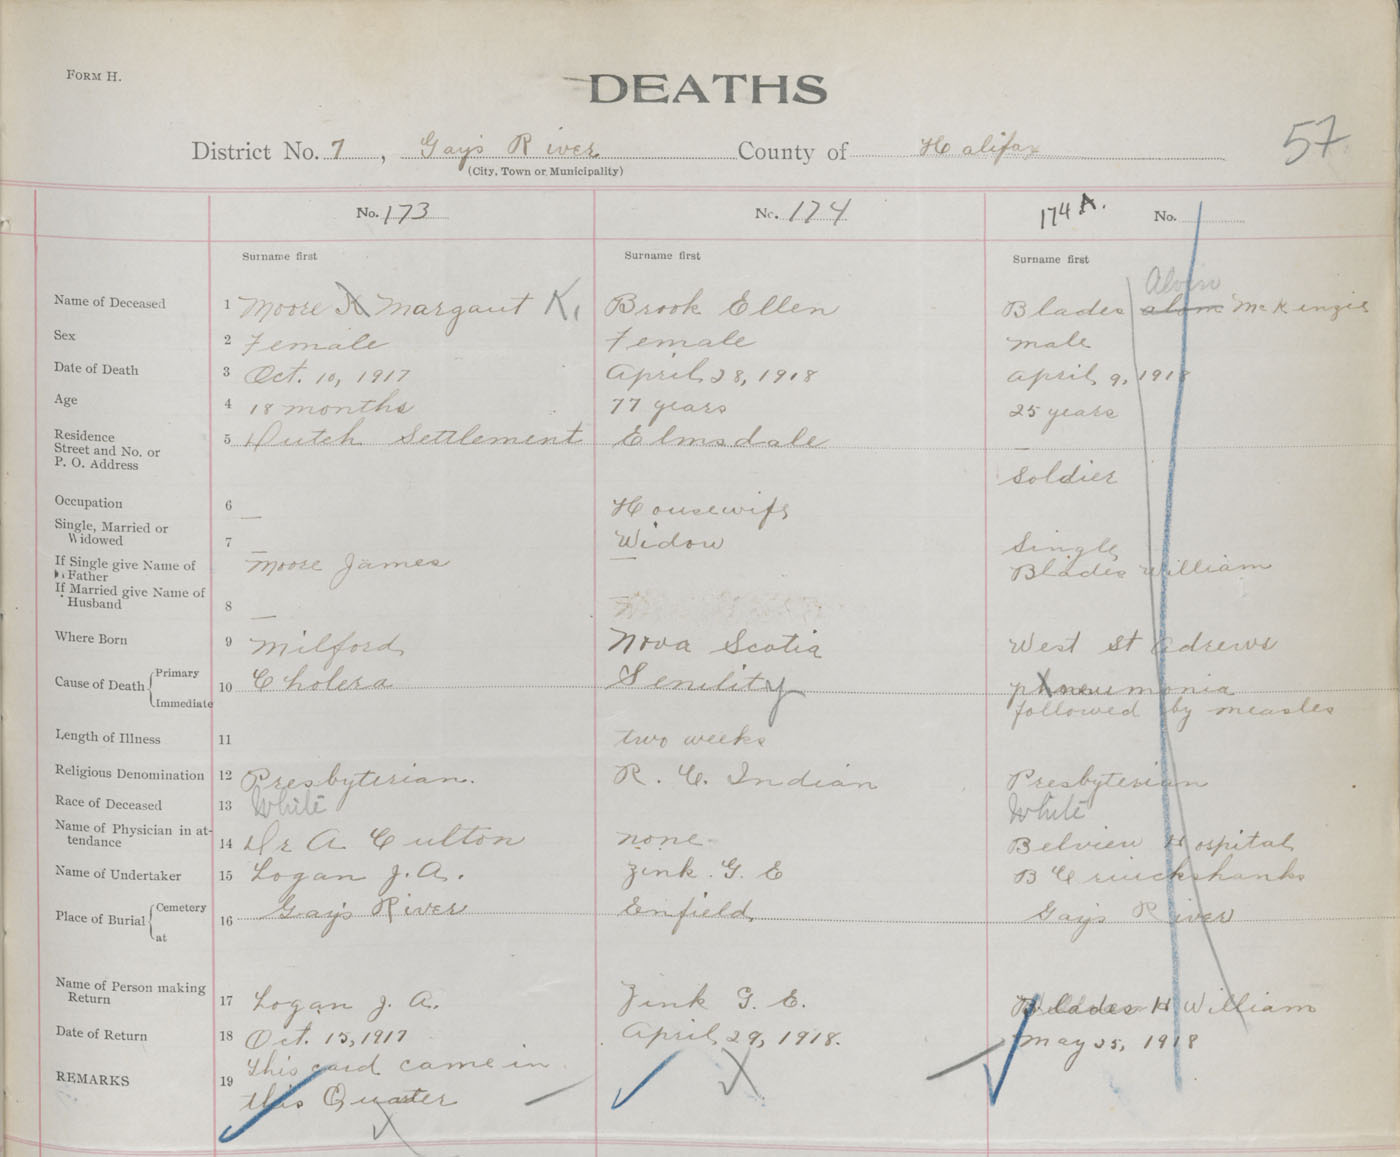 FORM H.
DEATHS
57
District No. 7, Gay's River County of Halifax
(City, Town or Municipality)
No. 173 No. 174 174 A. No.
Surname first Surname first Surname first
Alvin
Name of Deceased 1 Moore Margaut K. Brook Ellen Blades McKenzie
Sex 2 Female Female male
Date of Death 3 Oct. 10, 1917 April 28, 1918 April 9, 1918
Age 4 18 months 77 years 25 years
Residence Street and No. or P. O. Address 5 Dutch Settlement Elmsdale —
Occupation 6 — Housewife Soldier
Single, Married or Widowed 7 — Widow Single
If Single give Name of Father Moore James — Blades William
If Married give Name of Husband 8 —
Where Born 9 Milford Nova Scotia West St Adrews
Cause of Death Primary Immediate 10 Cholera Senility pneumonia
followed by measles
Length of Illness 11 two weeks
Religious Denomination 12 Presbyterian. R. C. Indian Presbyterian
Race of Deceased 13 White White
Name of Physician in attendance 14 Dr A Culton none Belview Hospital
Name of Undertaker 15 Logan J. A. Zink. G. E B Cruickshanks
Place of Burial Cemetery at 16 Gay's River Enfield Gays River
Name of Person making Return 17 Logan J. A. Zink G. E. Blades H William
Date of Return 18 Oct. 15, 1917 April 29, 1918. May 25, 1918
REMARKS 19 This card came in
this Quarter